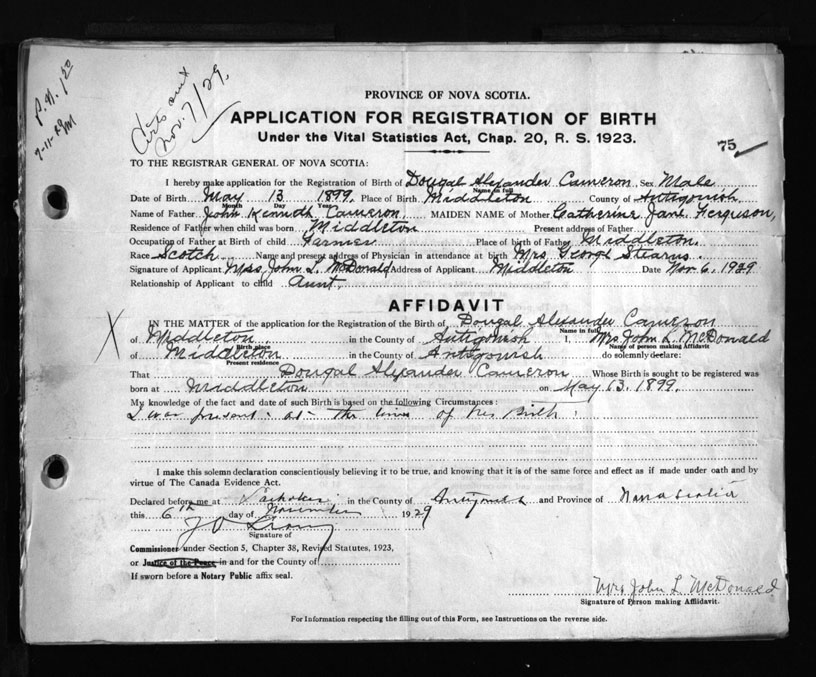 P.N. 1.50
7-11-29 M
Certs out
Nov. 7/29.
PROVINCE OF NOVA SCOTIA.
APPLICATION FOR REGISTRATION OF BIRTH
Under the Vital Statistics Act, Chap. 20, R. S. 1923.
75
TO THE REGISTRAR GENERAL OF NOVA SCOTIA:
I hereby make application for the Registration of Birth of Dougal Alexander Cameron Sex Male
Name in full
Date of Birth May 13 1899. Place of Birth Middleton County of Antigonish
Month Day Year
Name of Father John Kenneth Cameron, MAIDEN NAME of Mother Catherine Jane Ferguson,
Residence of Father when child was born Middleton Present address of Father
Occupation of Father at Birth of child Farmer Place of birth of Father Middleton.
Race Scotch Name and present address of Physician in attendance at birth Mrs George Stearns.
Signature of Applicant Mrs John L. McDonald Address of Applicant Middleton Date Nov 6. 1929
Relationship of Applicant to child Aunt.
AFFIDAVIT
X
IN THE MATTER of the application for the Registration of the Birth of Dougal Alexander Cameron
Name in full
of Middleton in the County of Antigonish I, Mrs John L. McDonald
Birth place Name of person making Affidavit
of Middleton in the County of Antigonish do solemnly declare:
Present residence
That Dougal Alexander Cameron Whose Birth is sought to be registered was
born at Middleton on May 13. 1899.
My knowledge of the fact and date of such Birth is based on the following Circumstances:
I was present at the time of his Birth.
I make this solemn declaration conscientiously believing it to be true, and knowing that it is of the same force and effect as if made under oath and by
virtue of The Canada Evidence Act.
Declared before me at in the County of Antigonish and Province of Nova Scotia
this 6th day of November 1929
Signature of
Commissioner under Section 5, Chapter 38, Revised Statutes, 1923,
or Justice of the Peace in and for the County of
If sworn before a Notary Public affix seal.
Mrs John L McDonald
Signature of Person making Affidavit.
For Information respecting the filling out of this Form, see Instructions on the reverse side.